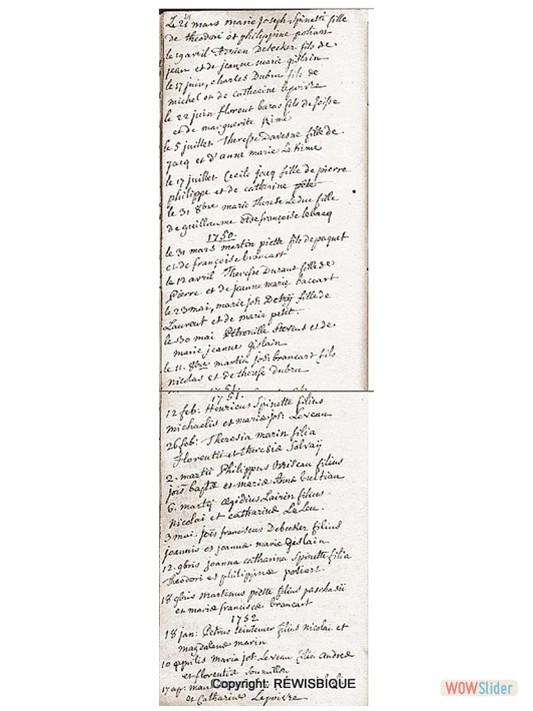 Le 21 mars marie Joseph Spinetti fille
de théodori et philippine poliars
le 19 avril Adrien Debecker fils de
jean et de jeanne marie gislain
le 17 juin, charles Dubru fils de
michel et de catherine Lepoivre
le 22 juin florent baras fils de
et de marguerite
le 5 juillet Therese Davesne fille de
Jacq et d'anne marie
le 17 juillet Cecile Jocq fille de pierre
philippe et de catharine
le 31 8bre marie Therese Leduc fille
de guillaume et de françoise
1750.
le 31 mars martin piette fils de paquet
et de françoise brancart
le 12 avril Therese Durant fille de
Pierre et de jeanne marie baccart
le 23 mai, marie jos: fille de
Laurent et de marie petit.
le 30 mai Pétronille Stevens et de
marie jeanne gislain
le 11. 8bre martin jos: brancart fils
nicolas et de therese Dubru
1751.
12 feb: Henricus Spinette filius
michaelis et mariæ jos: Leveau
26 feb: Theresia marin filia
florentii et theresiæ Solvaÿ
2. martii Philippus filius
jois baptæ et mariæ Anne
6. martij ægidius Lairin filius
Nicolai et catharinæ LeLeu.
3 mai. jo̅es franciscus Debecker filius
joannis et joannæ mariæ Gislain
12. 9bris joanna catharina Spinette filia
theodori et philippinæ poliart
18 9bris martinus piette filius paschasii
et mariæ franciscæ brancart
1752
18 jan: Petrus teintenier filius nicolai et
magdalenæ marin
10 aprilis maria jos: Leveau filia Andreæ
et florentiæ
17 ap:
et Catharinæ Lepoivre
Copyright: REWISBIQUE
WOWSlider